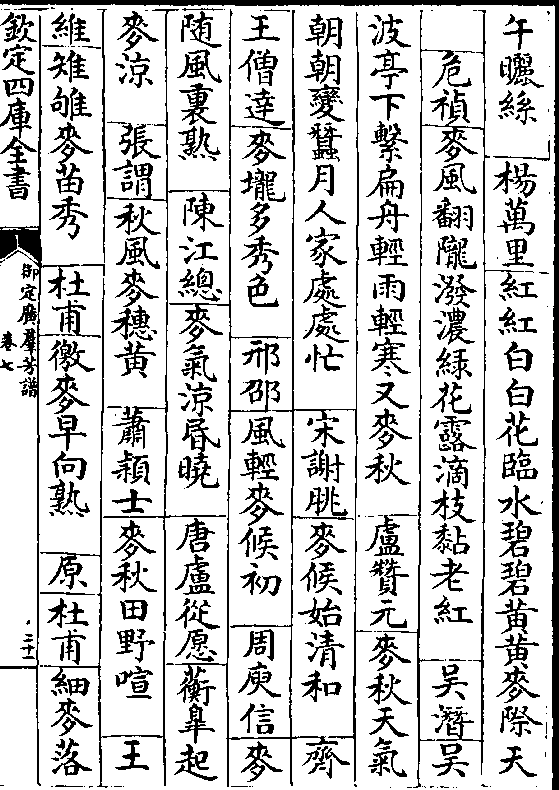 午曬絲　楊萬里紅紅白白花臨水碧碧黄黄麥際天
危禎麥風翻隴潑濃緑花露滴枝黏老紅　吴潛吴
波亭下繫扁舟輕雨輕寒又麥秋　盧贊元麥秋天氣
朝朝變蠶月人家處處忙　宋謝朓麥候始清和　齊
王僧達麥壠多秀色　邢邵風輕麥候初　周庾信麥
随風裏熟　陳江總麥氣涼昏曉　唐盧從愿蘅臯起
麥涼　張謂秋風麥穗黄　蕭頴士麥秋田野喧　王
維雉雊麥苗秀　杜甫徼麥早向熟　原杜甫細麥落
欽定四庫全書
御定廣羣芳譜
卷七
二十一